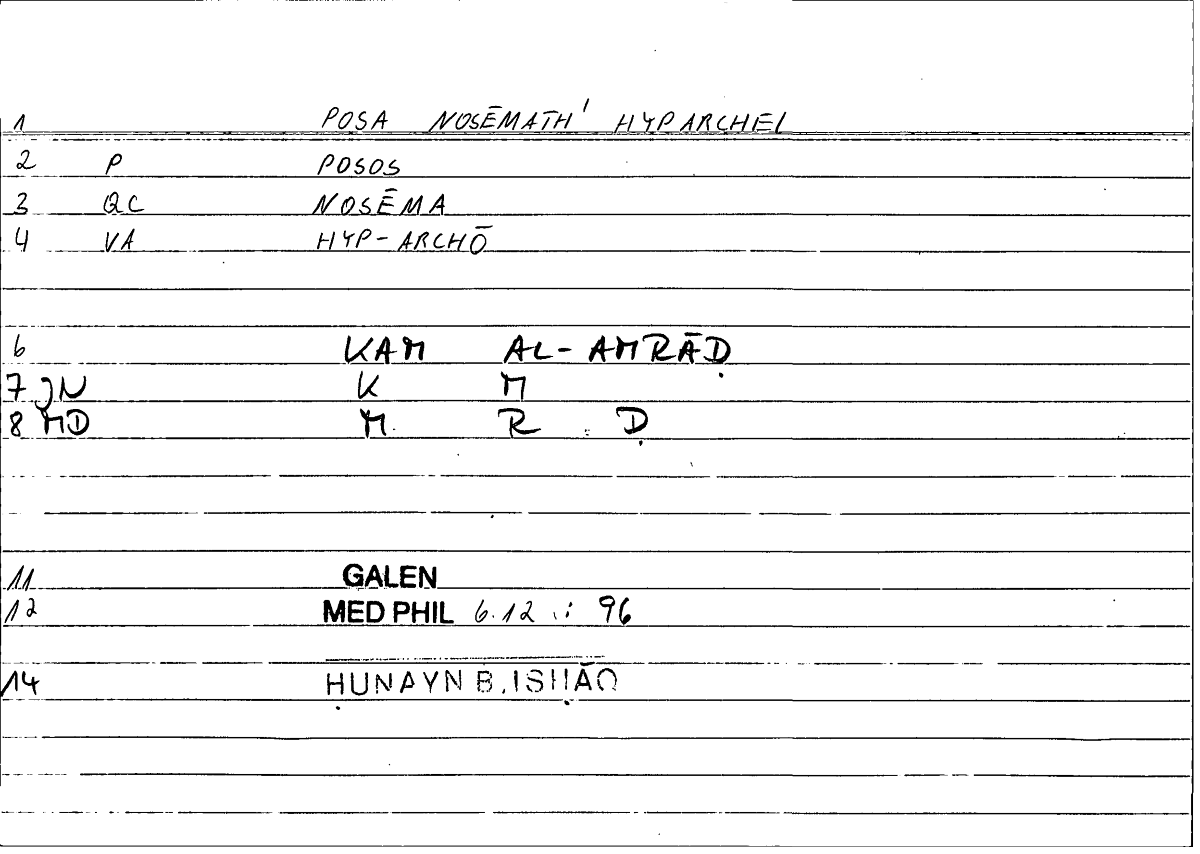 1 POSA NOSĒMATH' HYPARCHEI
2 P POSOS
3 QC NOSĒMA
4 VA HYP-ARCHŌ
6 KAM AL-AMRĀḌ
7 JN K M
8 MD M R Ḍ
11 GALEN
12 MED PHIL 6.12 .: 96
14 ḤUNAYN B. ISḤĀQ